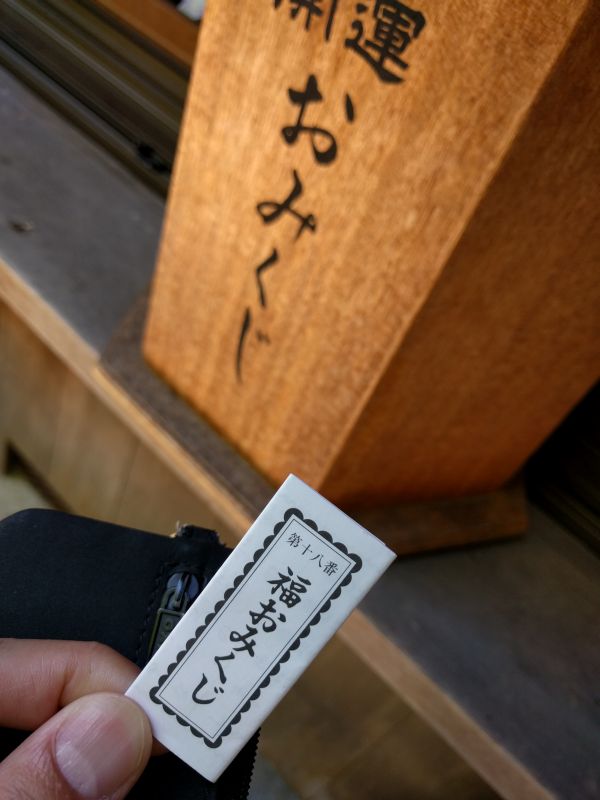 開運
おみくじ
第十八番
福おみくじ